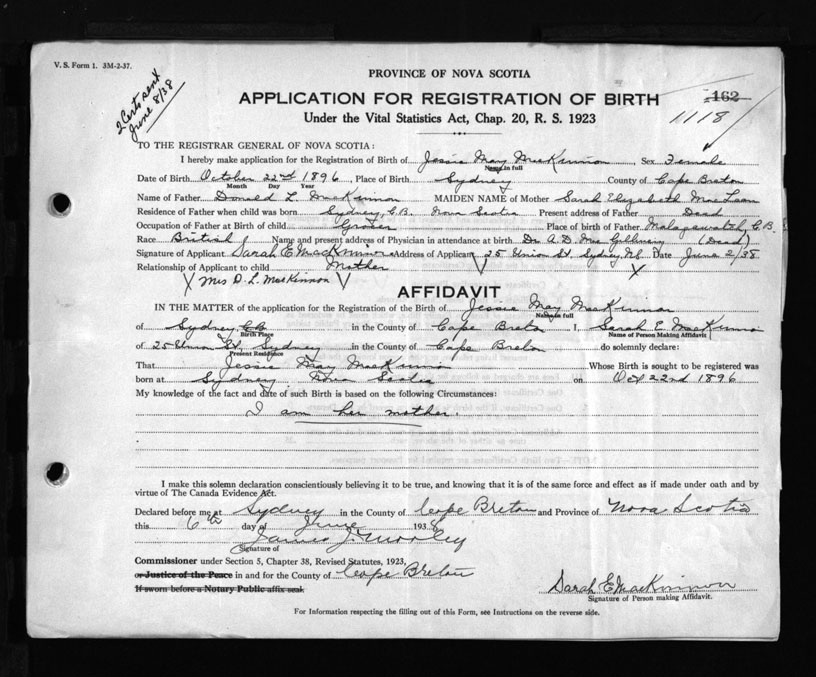 V. S. Form 1. 3M-2-37.
2 Certs sent
June 8/38
PROVINCE OF NOVA SCOTIA
APPLICATION FOR REGISTRATION OF BIRTH
162
1118
Under the Vital Statistics Act, Chap. 20, R. S. 1923
TO THE REGISTRAR GENERAL OF NOVA SCOTIA:
I hereby make application for the Registration of Birth of Jessie May MacKinnon, Sex Female
Name in full
Date of Birth October 22nd 1896, Place of Birth Sydney County of Cape Breton
Month Day Year
Name of Father Donald L. MacKinnon MAIDEN NAME of Mother Sarah Elizabeth MacLean
Residence of Father when child was born Sydney, C.B. Nova Scotia Present address of Father Dead
Occupation of Father at Birth of child Grocer Place of birth of Father Malagawatch, C.B.
Race British Name and present address of Physician in attendance at birth Dr. A. D. (Dead)
Signature of Applicant Sarah E MacKinnon Address of Applicant 25 Union St. Sydney N.S. Date June 2/38
Relationship of Applicant to child Mother
Mrs D. L. MacKinnon
AFFIDAVIT
IN THE MATTER of the application for the Registration of the Birth of Jessie May MacKinnon
Name in full
of Sydney C.B. in the County of Cape Breton I, Sarah E. MacKinnon
Birth Place Name of Person Making Affidavit
of 25 Union St., Sydney in the County of Cape Breton do solemnly declare:
Present Residence
That Jessie May MacKinnon Whose Birth is sought to be registered was
born at Sydney Nova Scotia on Oct 22nd 1896
My knowledge of the fact and date of such Birth is based on the following Circumstances:
I am her mother.
I make this solemn declaration conscientiously believing it to be true, and knowing that it is of the same force and effect as if made under oath and by
virtue of The Canada Evidence Act.
Declared before me at Sydney in the County of Cape Breton and Province of Nova Scotia
this 6th day of June 1938
James J.
Signature of
Commissioner under Section 5, Chapter 38, Revised Statutes, 1923,
or Justice of the Peace in and for the County of Cape Breton
If sworn before a Notary Public affix seal.
Sarah E MacKinnon
Signature of Person making Affidavit.
For Information respecting the filling out of this Form, see Instructions on the reverse side.